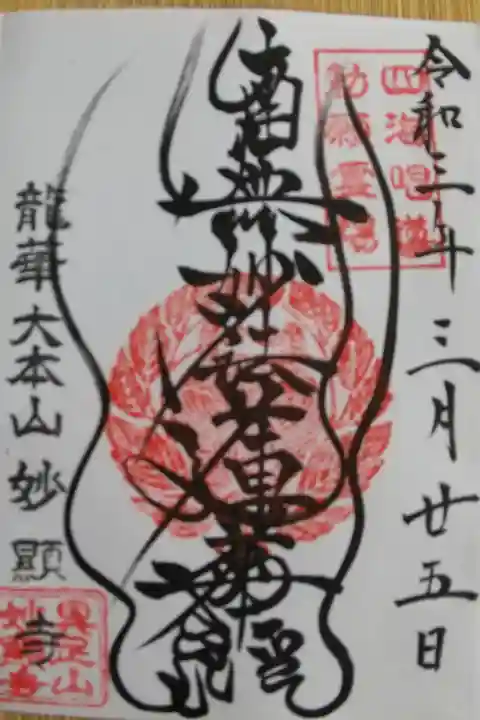 令和三年三月廿五日
四海唱導
勅願靈場
南無妙法蓮華經
龍華 大本山 妙顯寺
具足山
妙顯寺